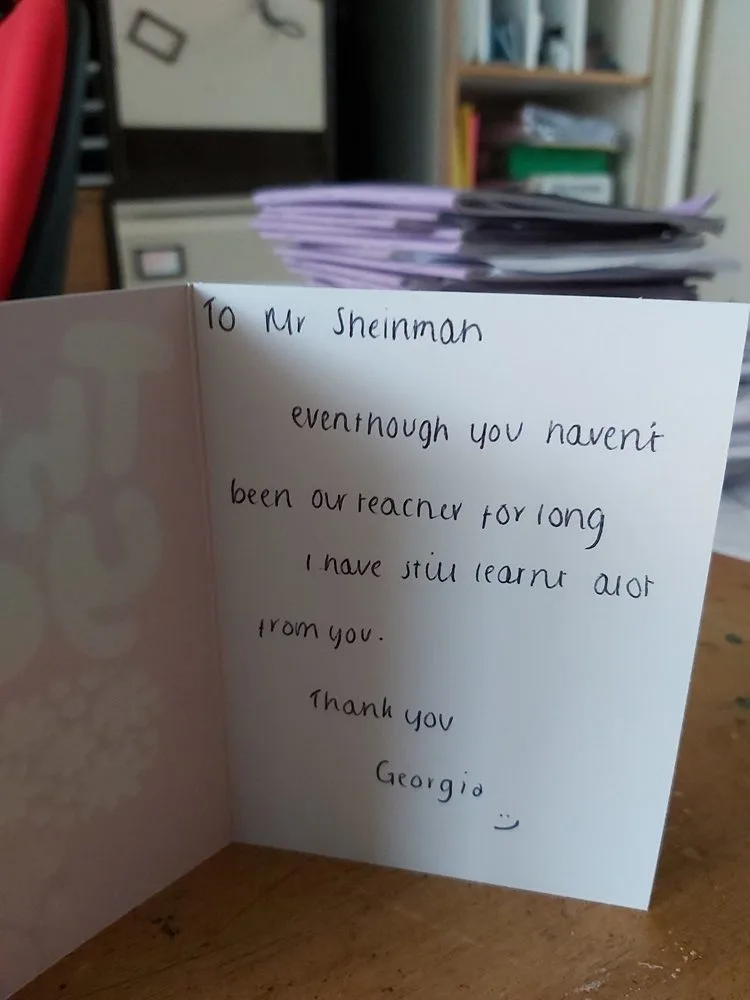 To Mr Sheinman
eventhough you haven't
been our teacher for long
I have still learnt alot
from you.
Thank you
Georgia